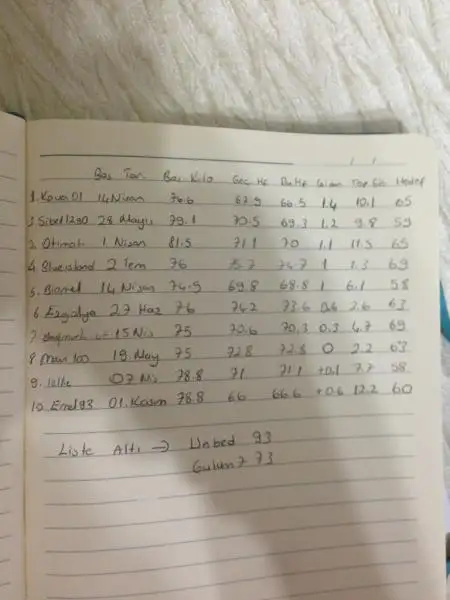 Baş Tar. Baş Kilo Geç Hf Bu Hf Giden Top Gid Hedef
1. Kova 01 14 Nisan 76.6 67.9 66.5 1.4 10.1 65
2. Sibel1290 28 Mayıs 79.1 70.5 69.3 1.2 9.8 59
3. 1 Nisan 81.5 71.1 70 1.1 11.5 65
4. 2 Tem 76 75.7 74.7 1 1.3 69
5. 14 Nisan 74.9 69.8 68.8 1 6.1 58
6. 27 Haz 76 74.2 73.6 0.6 2.6 63
7. 15 Nis 75 70.6 70.3 0.3 4.7 69
8. 19 May 75 72.8 72.8 0 2.2 63
9. 07 78.8 71 71.1 +0.1 7.7 58
10. Emel 93 01. Kasım 78.8 66 66.6 +0.6 12.2 60
Liste Altı → 93
73